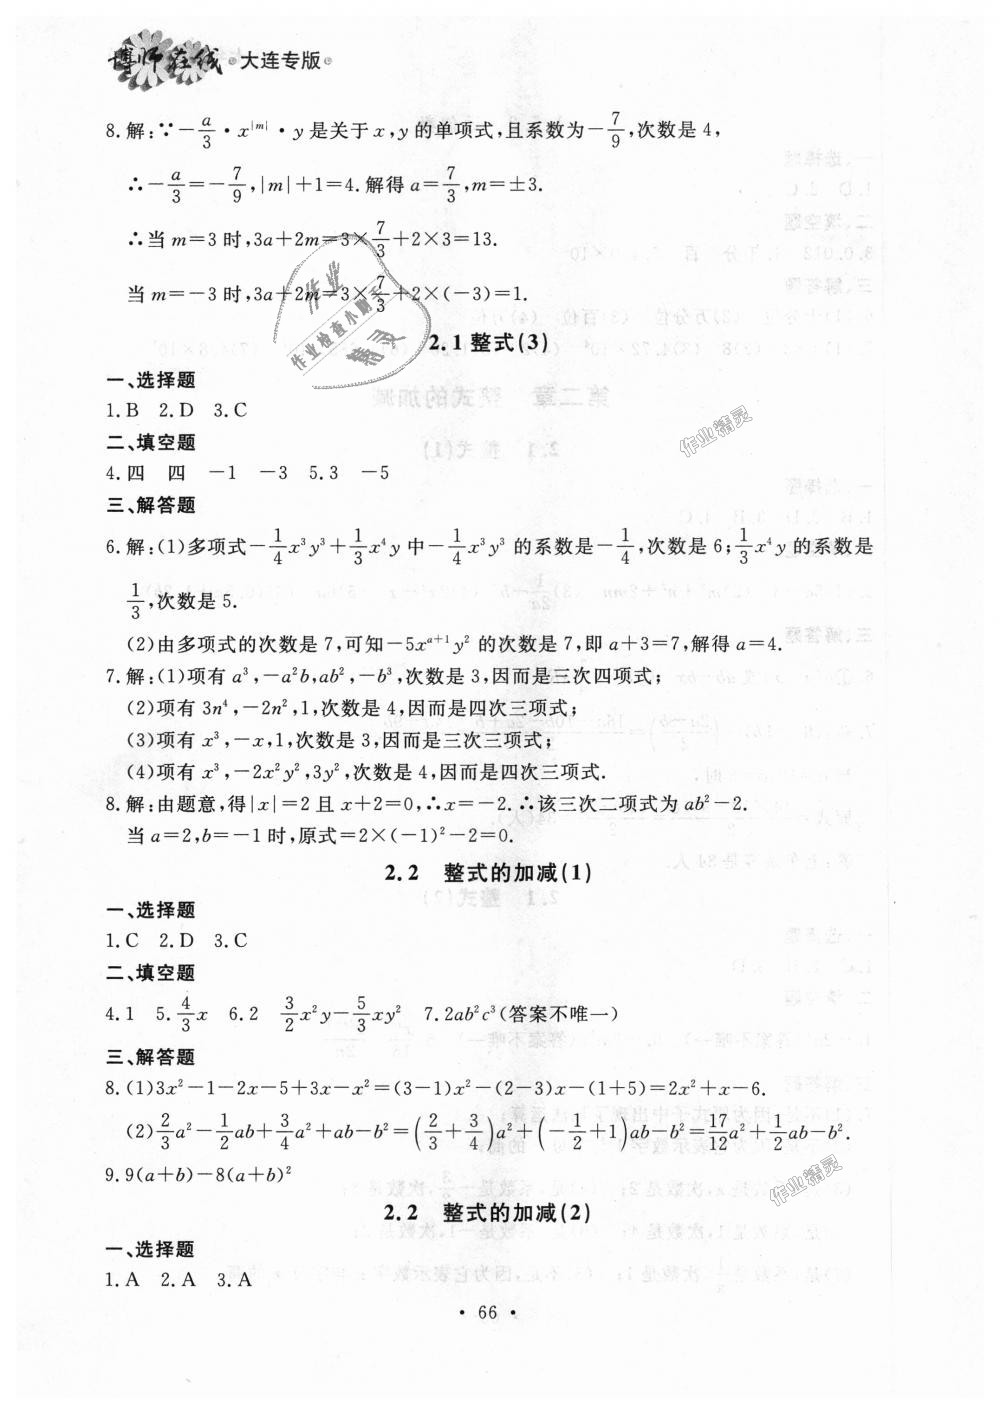 博师在线·大连专版·
8.解:∵-a/3·x^|m|·y是关于x,y的单项式,且系数为-7/9,次数是4,
∴-a/3=-7/9,|m|+1=4.解得a=7/3,m=±3.
∴当m=3时,3a+2m=3×7/3+2×3=13.
当m=-3时,3a+2m=3×7/3+2×(-3)=1.
作业
作业检查小助手
精灵
2.1整式(3)
一、选择题
1.B 2.D 3.C
二、填空题
作业精灵
4.四 四 -1 -3 5.3 -5
三、解答题
6.解:(1)多项式-1/4x³y³+1/3x⁴y中-1/4x³y³的系数是-1/4,次数是6;1/3x⁴y的系数是
1/3,次数是5.
(2)由多项式的次数是7,可知-5x^(a+1)y²的次数是7,即a+3=7,解得a=4.
7.解:(1)项有a³,-a²b,ab²,-b³,次数是3,因而是三次四项式;
(2)项有3n⁴,-2n²,1,次数是4,因而是四次三项式;
(3)项有x³,-x,1,次数是3,因而是三次三项式;
(4)项有x³,-2x²y²,3y²,次数是4,因而是四次三项式.
8.解:由题意,得|x|=2且x+2=0,∴x=-2.∴该三次二项式为ab²-2.
当a=2,b=-1时,原式=2×(-1)²-2=0.
2.2 整式的加减(1)
一、选择题
1.C 2.D 3.C
二、填空题
4.1 5.4/3x 6.2 3/2x²y-5/3xy² 7.2ab²c³(答案不唯一)
三、解答题
8.(1)3x²-1-2x-5+3x-x²=(3-1)x²-(2-3)x-(1+5)=2x²+x-6.
(2)2/3a²-1/2ab+3/4a²+ab-b²=(2/3+3/4)a²+(-1/2+1)ab-b²=17/12a²+1/2ab-b².
9.9(a+b)-8(a+b)²
作业精灵
2.2 整式的加减(2)
一、选择题
1.A 2.A 3.A
·66·